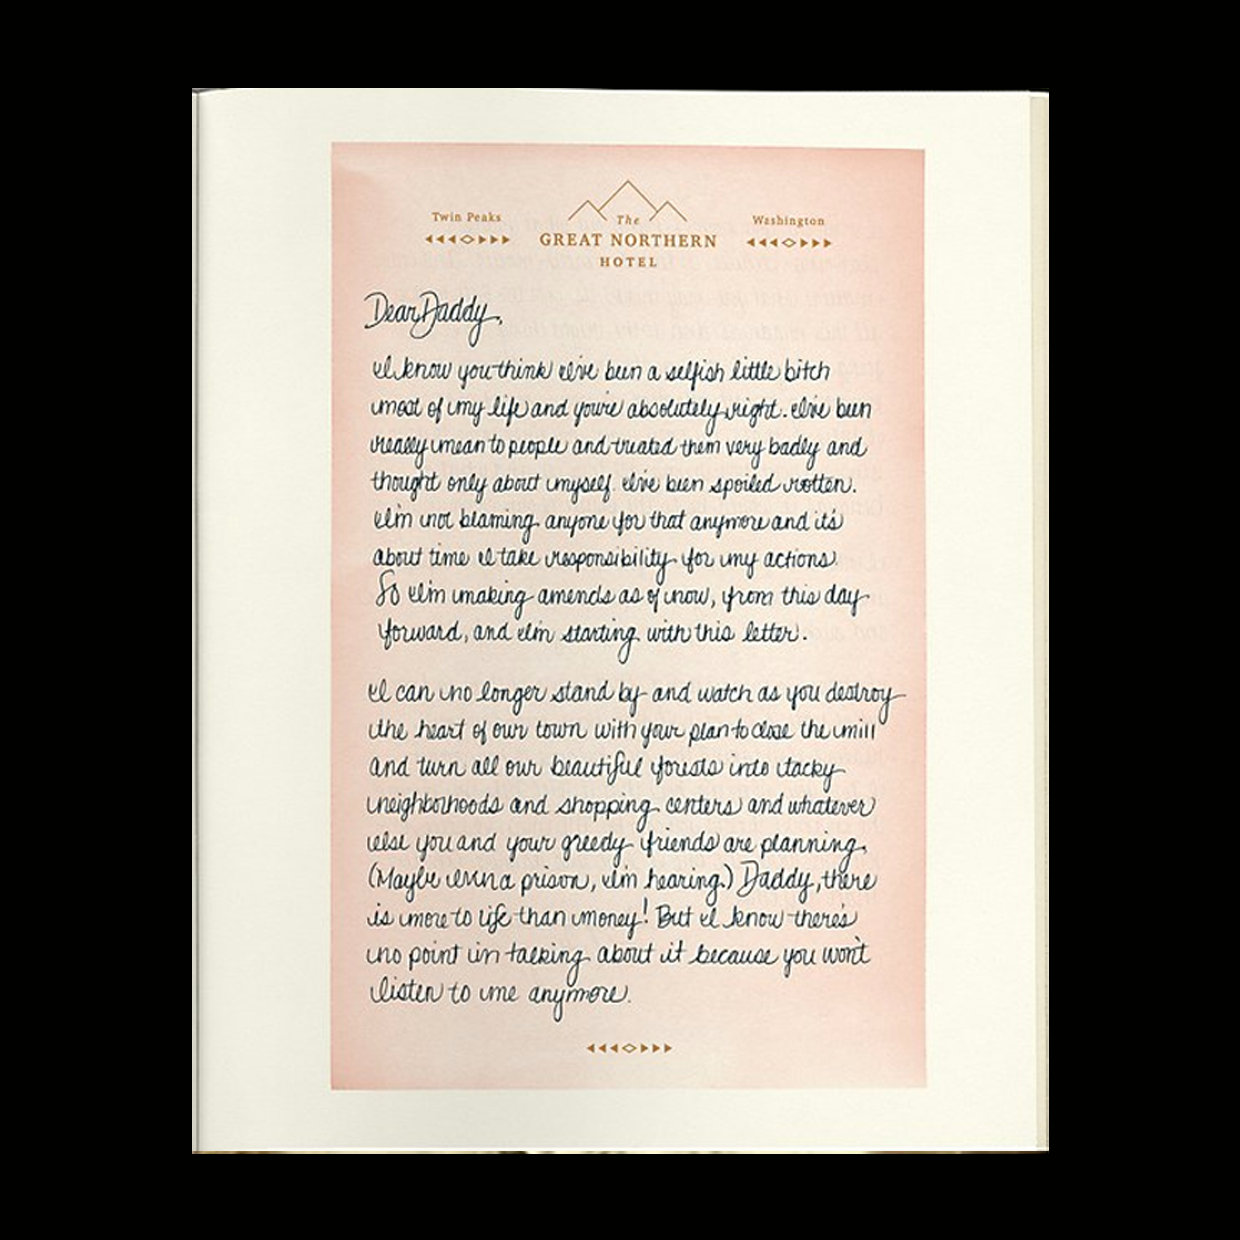 Twin Peaks
The
GREAT NORTHERN
HOTEL
Washington
Dear Daddy,
I know you think I've been a selfish little bitch
most of my life and you're absolutely right. I've been
really mean to people and treated them very badly and
thought only about myself. I've been spoiled rotten.
I'm not blaming anyone for that anymore and it's
about time I take responsibility for my actions.
So I'm making amends as of now, from this day
forward, and I'm starting with this letter.
I can no longer stand by and watch as you destroy
the heart of our town with your plan to close the mill
and turn all our beautiful forests into tacky
neighborhoods and shopping centers and whatever
else you and your greedy friends are planning.
(Maybe even a prison, I'm hearing.) Daddy, there
is more to life than money! But I know there's
no point in talking about it because you won't
listen to me anymore.